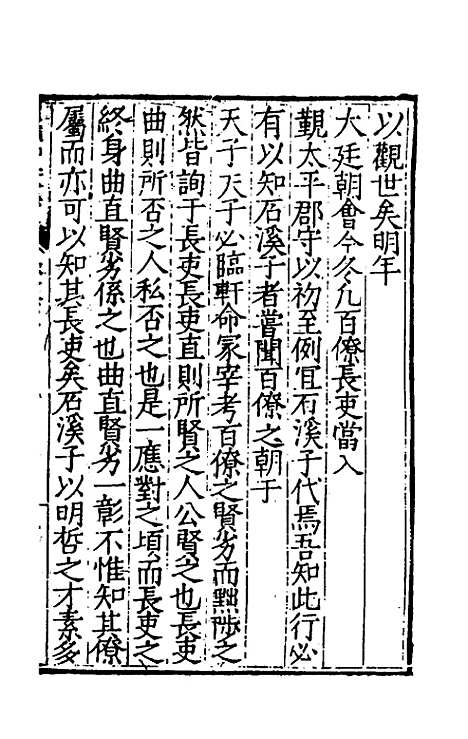 以觀世矣明年
大廷朝會今冬凡百僚長吏當入
覲太平郡守以初至例宜石溪子代焉吾知此行必
有以知石溪子者嘗聞百僚之朝于
天子天子必臨軒命冢宰考百僚之賢劣而黜陟之
然皆詢于長吏長吏直則所賢之人公賢之也長吏
曲則所否之人私否之也是一應對之頃而長吏之
終身曲直賢劣係之也曲直賢劣一彰不惟知其僚
屬而亦可以知其長吏矣石溪子以明哲之才素多